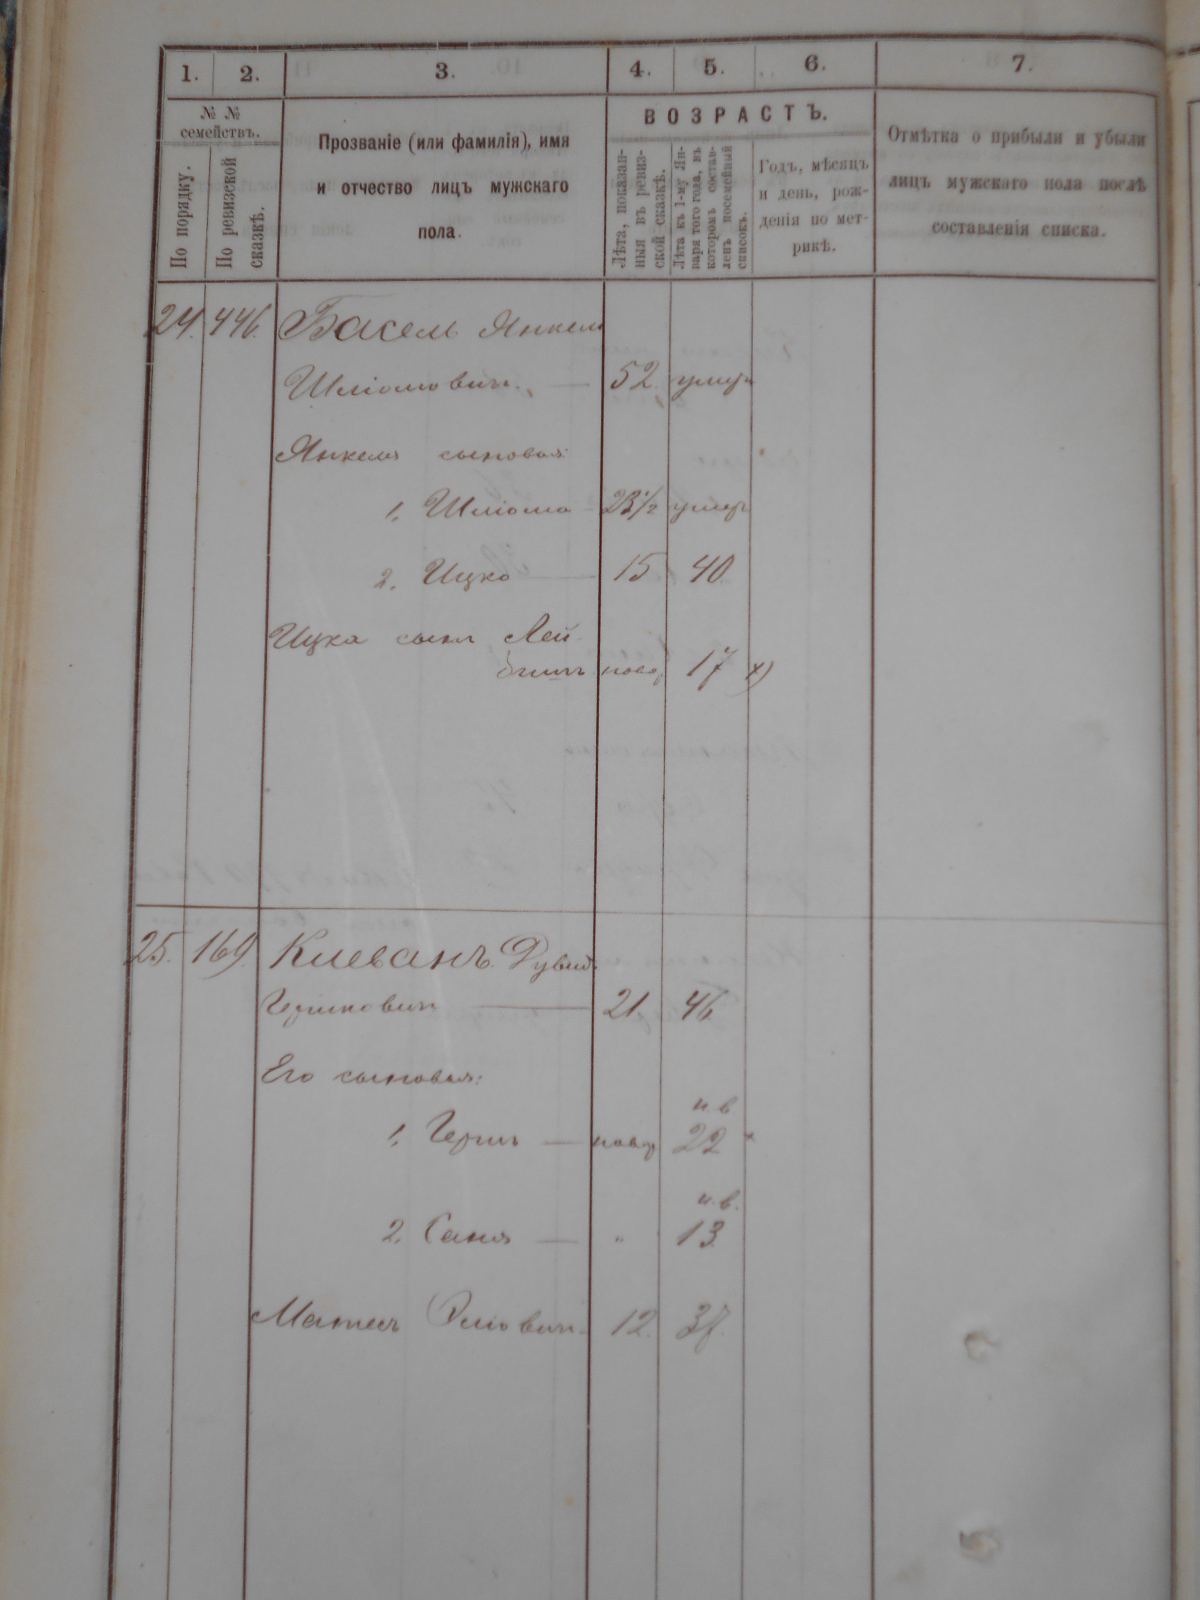 1. 2. 3. 4. 5. 6. 7.
№ №
семействъ.
По порядку.
По ревизской
сказкѣ.
Прозваніе (или фамилія), имя
и отчество лицъ мужскаго
пола.
ВОЗРАСТЪ.
Лѣта, показан-
ныя въ ревиз-
ской сказкѣ.
Лѣта къ 1-му Ян-
варя того года, въ
которомъ состав-
ленъ посемейный
списокъ.
Годъ, мѣсяцъ
и день, рож-
денія по мет-
рикѣ.
Отмѣтка о прибыли и убыли
лицъ мужскаго пола послѣ
составленія списка.
24. 446. Басель Янкель
Шліомович. — 52. умер
Янкеля сыновья:
1. Шліома 23½ умер
2. Ицко — 15 40.
Ицка сын Лей-
бишъ новор 17 х)
25. 169. Клеванъ Дувид
Гершкович — 21. 46.
Его сыновья:
н. в.
1. Герш — новор 22 х
н. в.
2. Саня — " 13.
12. 37.